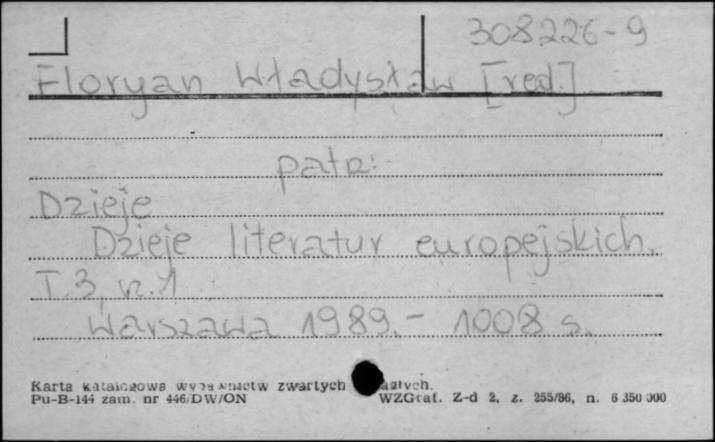 308226-9
Floryan Władysław [red.]
patrz:
Dzieje
Dzieje literatur europejskich.
T.3, cz.1
Warszawa 1989.- 1008 s.
Karta katalogowa wydawnictw zwartych
Pu-B-144 zam. nr 446/DW/ON WZGraf. Z-d 2, z. 255/86, n. 6 350 000